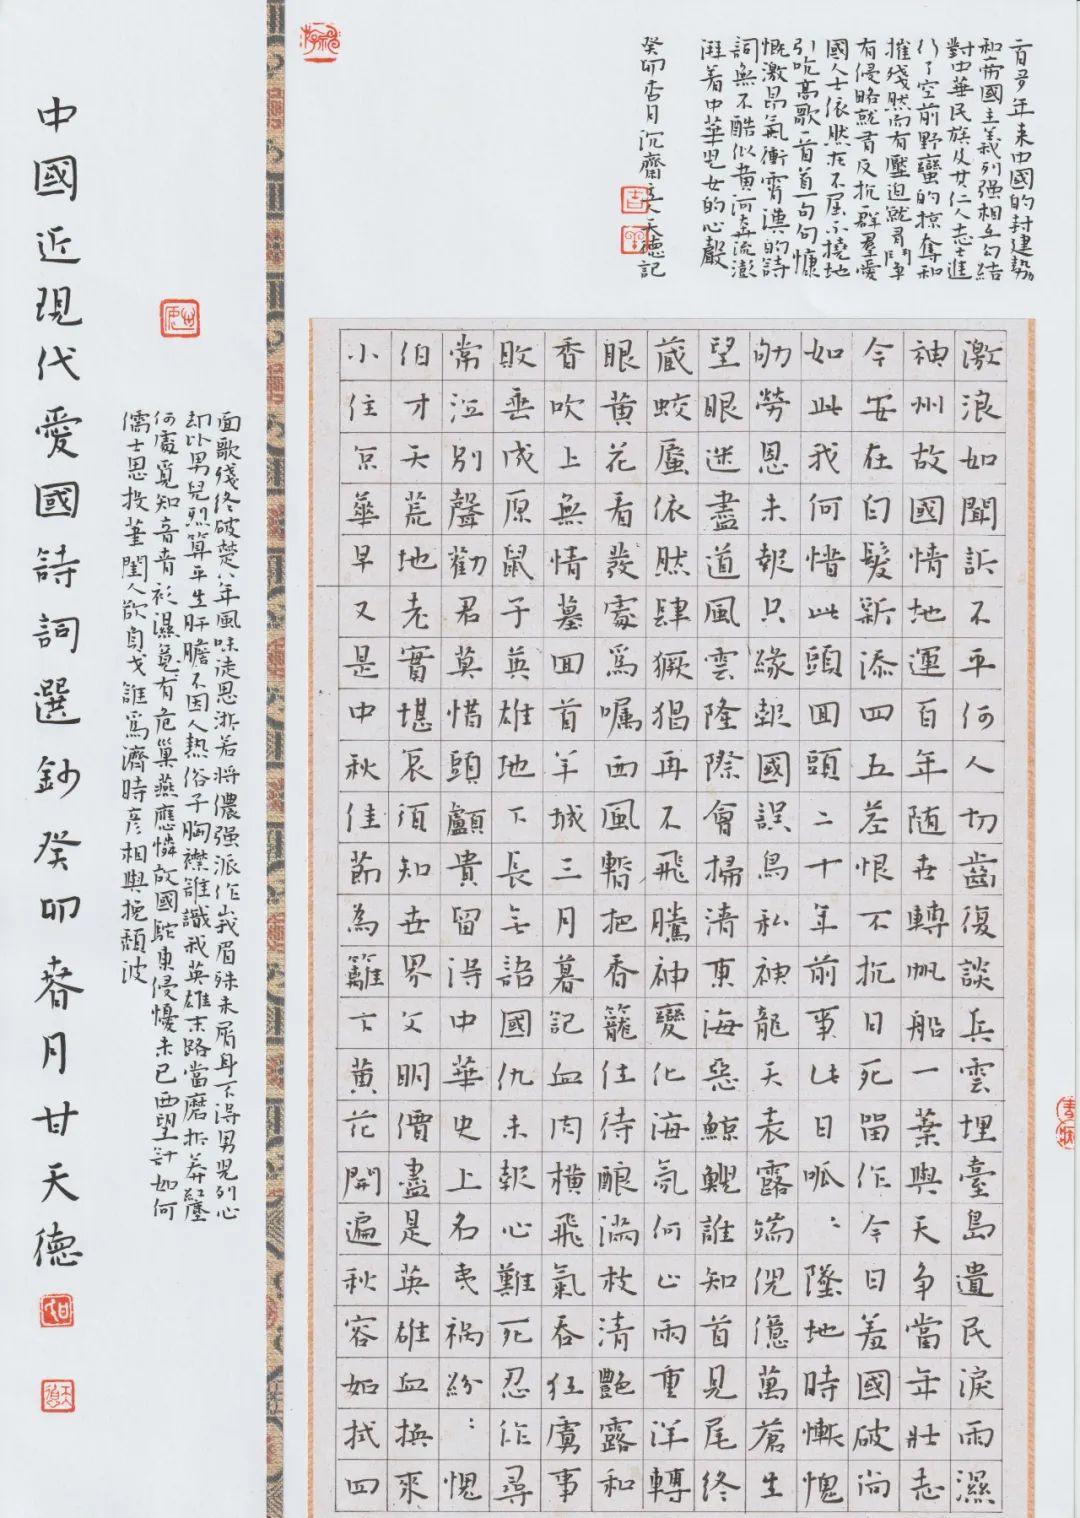 百多年来中國的封建勢力
和帝國主義列强相互勾結
對中華民族及其仁人志士進
行了空前野蠻的掠奪和
摧殘然而有壓迫就有鬥爭
有侵略就有反抗群羣愛
國人士依然在不屈不撓地
引吭高歌一首首一句句慷
慨激昂氣衝霄漢的詩
詞無不酷似黄河奔流澎
湃着中華兒女的心聲
癸卯杏月沉齋主人天德記
激浪如聞訴不平何人切齒復談兵雲埋臺島遺民淚雨濕
神州故國情地運百年随世轉帆船一葉與天争當年壯志
今安在白髮新添四五莖恨不抗日死留作今日羞國破尚
如此我何惜此頭回頭二十年前事此日呱:墜地時慚愧
劬勞恩未報只緣報國誤烏私神龍天表露端倪億萬蒼生
望眼迷盡道風雲隆際會掃清東海惡鯨鯢誰知首見尾終
藏蛟蜃依然肆獗猖再不飛騰神變化海氛何止雨重洋轉
眼黄花看發處爲囑西風暫把香籠住待釀滿枝清艷露和
香吹上無情墓回首羊城三月暮記血肉横飛氣吞狂虜事
敗垂成原鼠子英雄地下長無語國仇未報心難死忍作尋
常泣别聲勸君莫惜頭顱貴留得中華史上名夷祸紛:愧
伯才天荒地老實堪哀須知世界文明價盡是英雄血换來
小住京華早又是中秋佳節為籬下黄花開遍秋容如拭四
面歌殘終破楚八年風味徒思浙苦將儂强派作蛾眉殊未屑身不得男兒列心
却比男兒烈算平生肝膽不因人熱俗子胸襟誰識我英雄末路當磨折莽紅塵
何處覓知音青衫濕竟有危巢燕應憐故國駝東侵憂未已西望計如何
儒士思投筆閨人欲負戈誰爲濟時彦相與挽頹波
中國近現代愛國詩詞選鈔癸卯春月甘天德